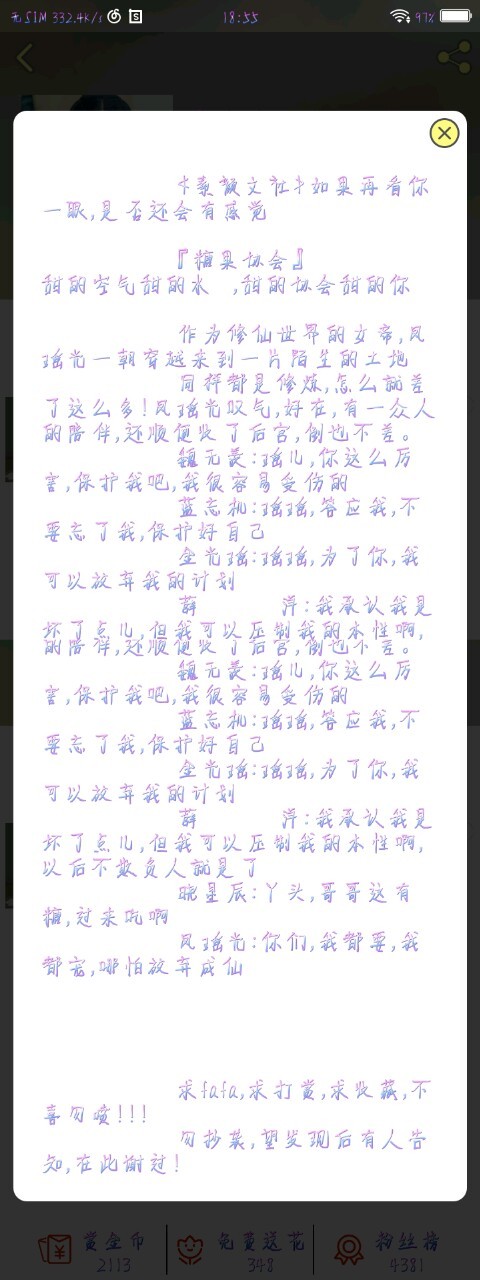 无SIM 332.4K/s 18:55 97%
素颜文社 如果再看你
一眼,是否还会有感觉
『糖果协会』
甜的空气甜的水 ,甜的协会甜的你
作为修仙世界的女帝,凤
瑶光一朝穿越来到一片陌生的土地
同样都是修炼,怎么就差
了这么多!凤瑶光叹气,好在,有一众人
的陪伴,还顺便收了后宫,倒也不差。
魏无羡:瑶儿,你这么厉
害,保护我吧,我很容易受伤的
蓝忘机:瑶瑶,答应我,不
要忘了我,保护好自己
金光瑶:瑶瑶,为了你,我
可以放弃我的计划
薛 洋:我承认我是
坏了点儿,但我可以压制我的本性啊,
的陪伴,还顺便收了后宫,倒也不差。
魏无羡:瑶儿,你这么厉
害,保护我吧,我很容易受伤的
蓝忘机:瑶瑶,答应我,不
要忘了我,保护好自己
金光瑶:瑶瑶,为了你,我
可以放弃我的计划
薛 洋:我承认我是
坏了点儿,但我可以压制我的本性啊,
以后不欺负人就是了
晓星辰:丫头,哥哥这有
糖,过来吃啊
凤瑶光:你们,我都要,我
都宠,哪怕放弃成仙
求fafa,求打赏,求收藏,不
喜勿喷!!!
勿抄袭,望发现后有人告
知,在此谢过!
赏金币 免费送花 粉丝榜
2113 348 4381